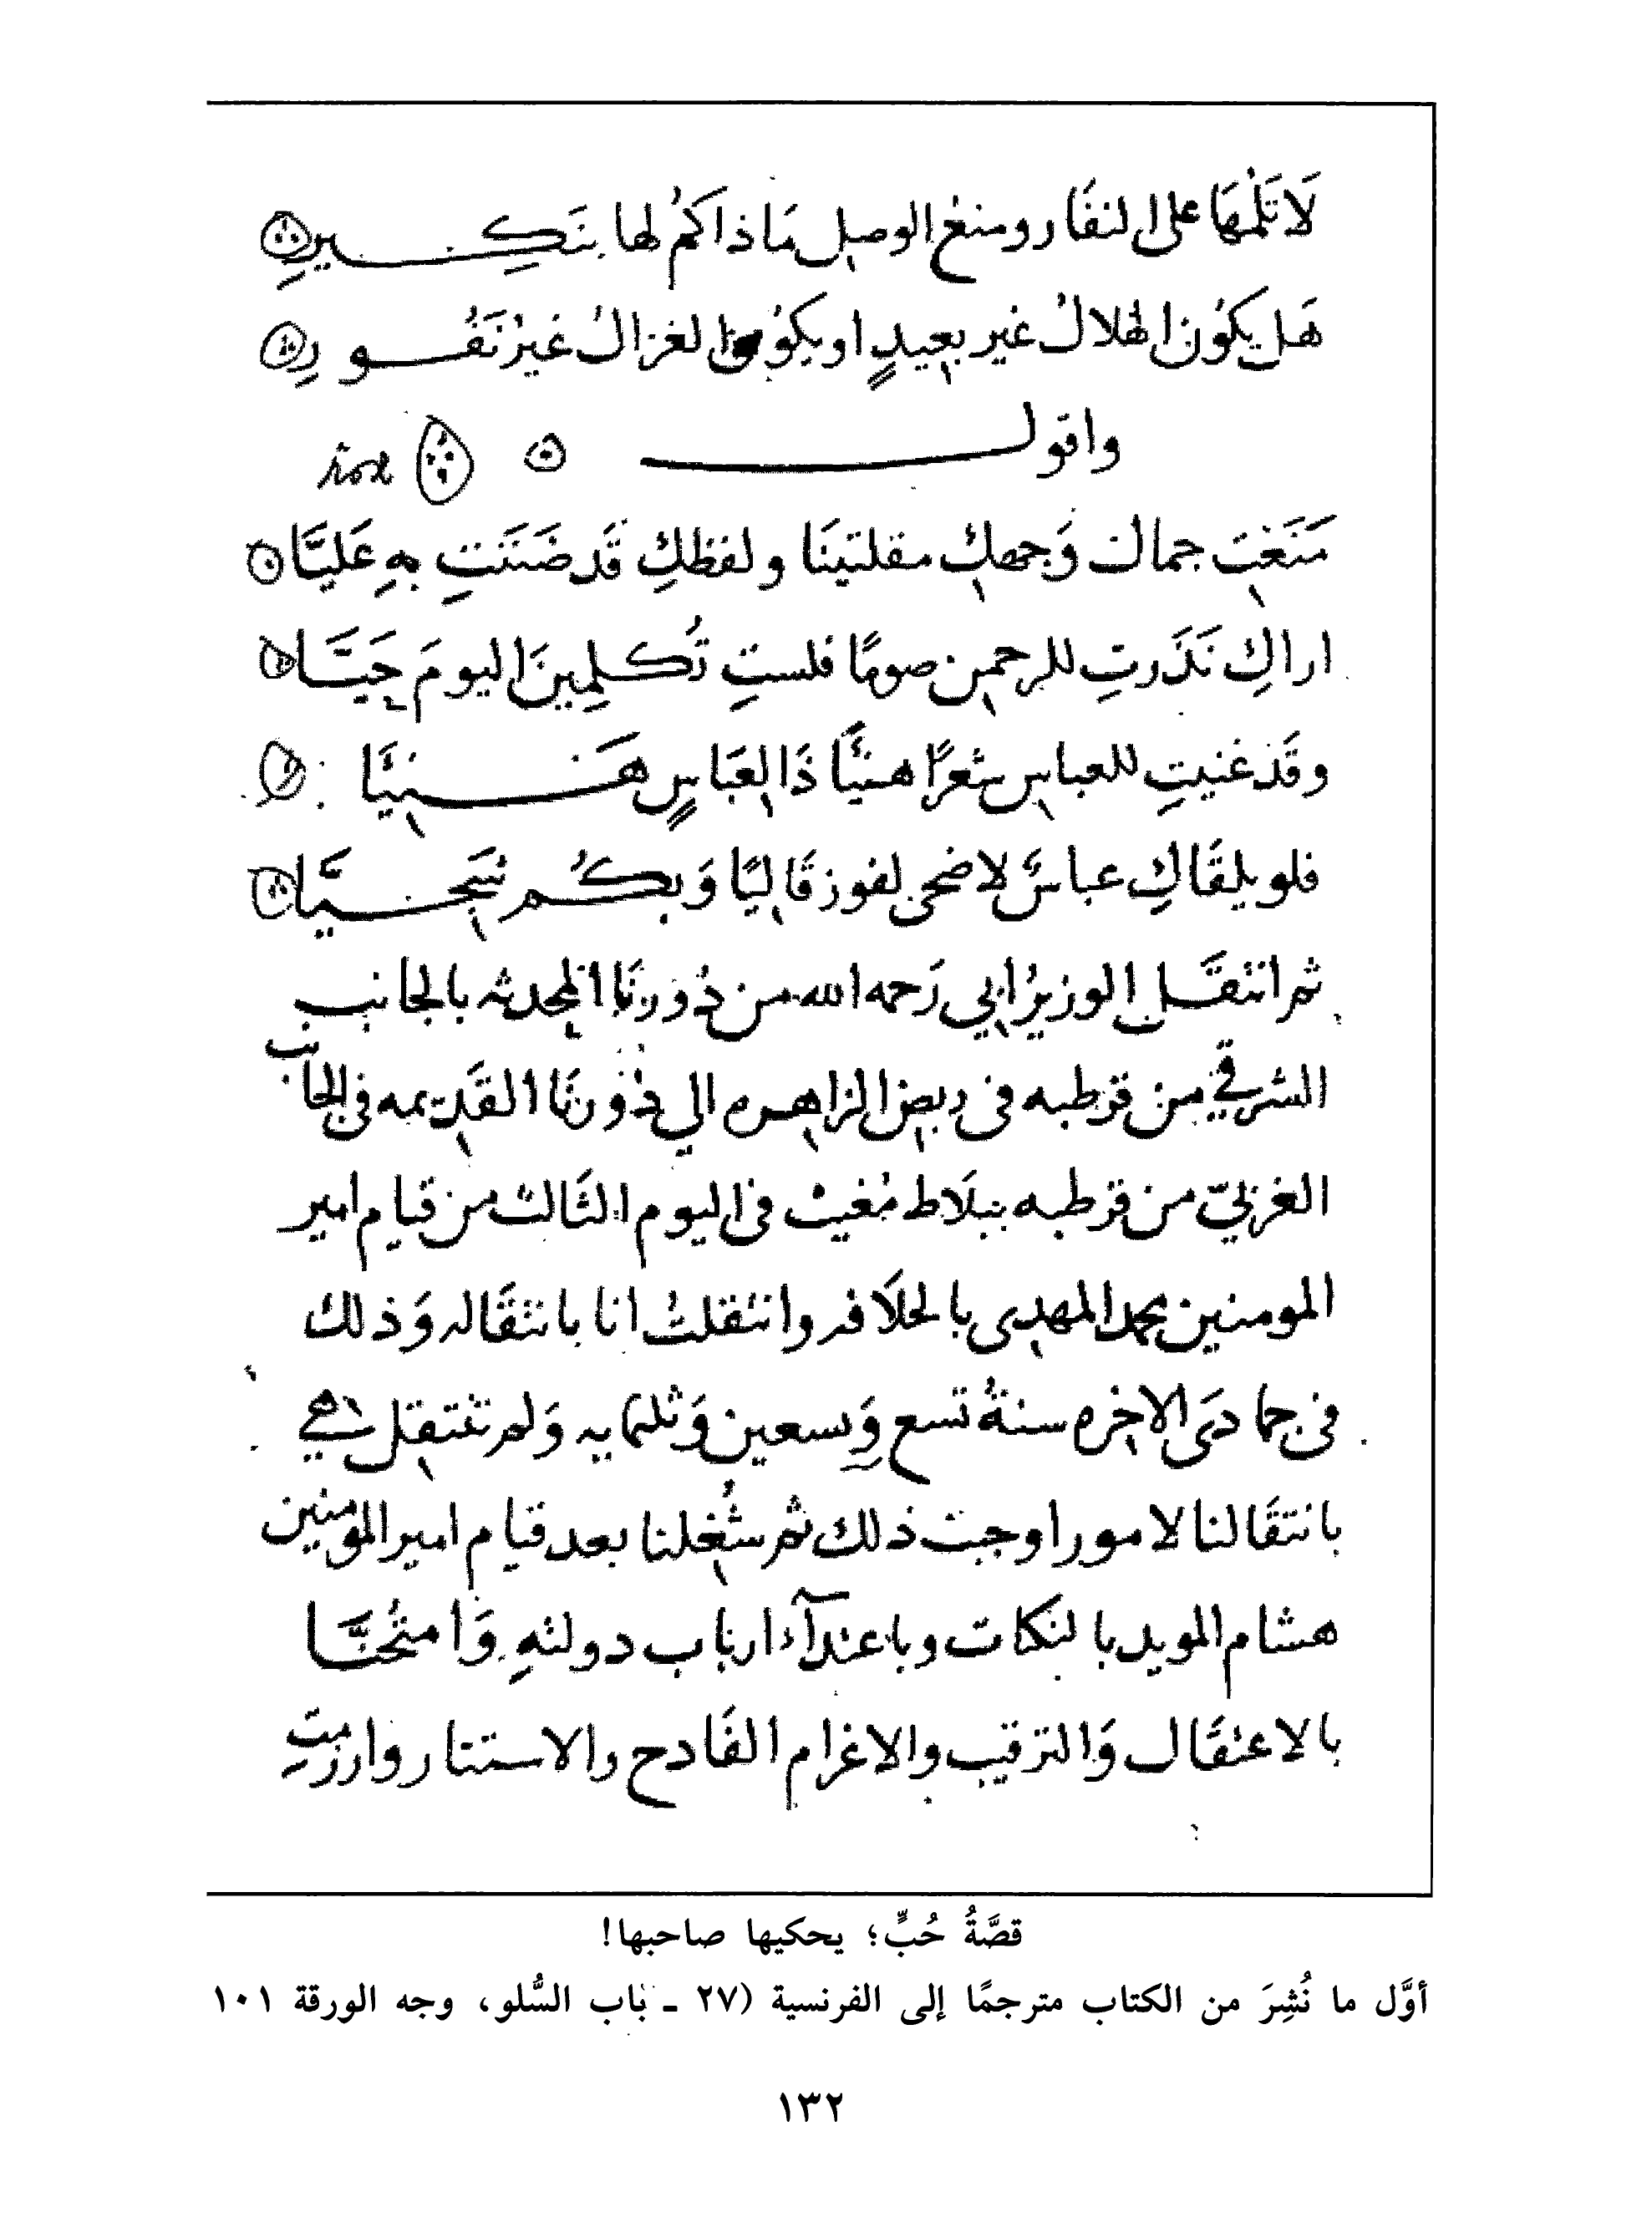 لَا تَلُمْهَا على النفَار ومنع الوصل مَا ذاكمُ لها بنَكِيرِ
هَل يكُون الهلالُ غير بعيدٍ او يكوُن الغزالُ غيرُ نَفُورِ
واقول
مَنَعْتِ جمالَ وَجهكِ مقلتينَا ولفظكِ قَد ضَنَنَتِ بهِ عَليَّا
اراكِ نَذَرتِ للرحمن صومًا فلستِ تُكلِمِينَ اليومَ حَيَّا
وقَد غنيتِ للعباسِ شعرًا هنيًّا ذَا لعَباسٍ هَنِيًّا
فلو يلقَاكِ عباسٌ لاضحى لفوز قَاليًا وَبكُم شَجيَّا
ثم انتقَل الوزيرُ ابي رَحمه الله من دُورنَا المحدثه بالجانب
الشرقي من قرطبه فى ربض الزاهره الي دُورنَا القَديمه فى الجانب
الغربيّ من قرطبه ببلَاط مُغيث فى اليوم الثَالث من قيام امير
المومنين محمد المهدى بالخلَافه وانتقلتُ انا بانتقَاله وَذلك
فى جمادَى الاخره سنةُ تسع وَتسعين وَثلثمايه وَلم تنتقل هي
بانتقَالنا لامور اوجبت ذلك ثم شُغلنا بعد قيام امير المومنين
هشام المويد بالنكبات وباعتدآء ارباب دولتهِ وَامتُحنَّا
بالاعتقَال وَالترقيب والاغرام الفَادح والاستتار وارزمتِ
قصَّةُ حُبٍّ؛ يحكيها صاحبها!
أوَّل ما نُشِرَ من الكتاب مترجمًا إلى الفرنسية (٢٧ ـ باب السُّلو، وجه الورقة ١٠١
١٣٢